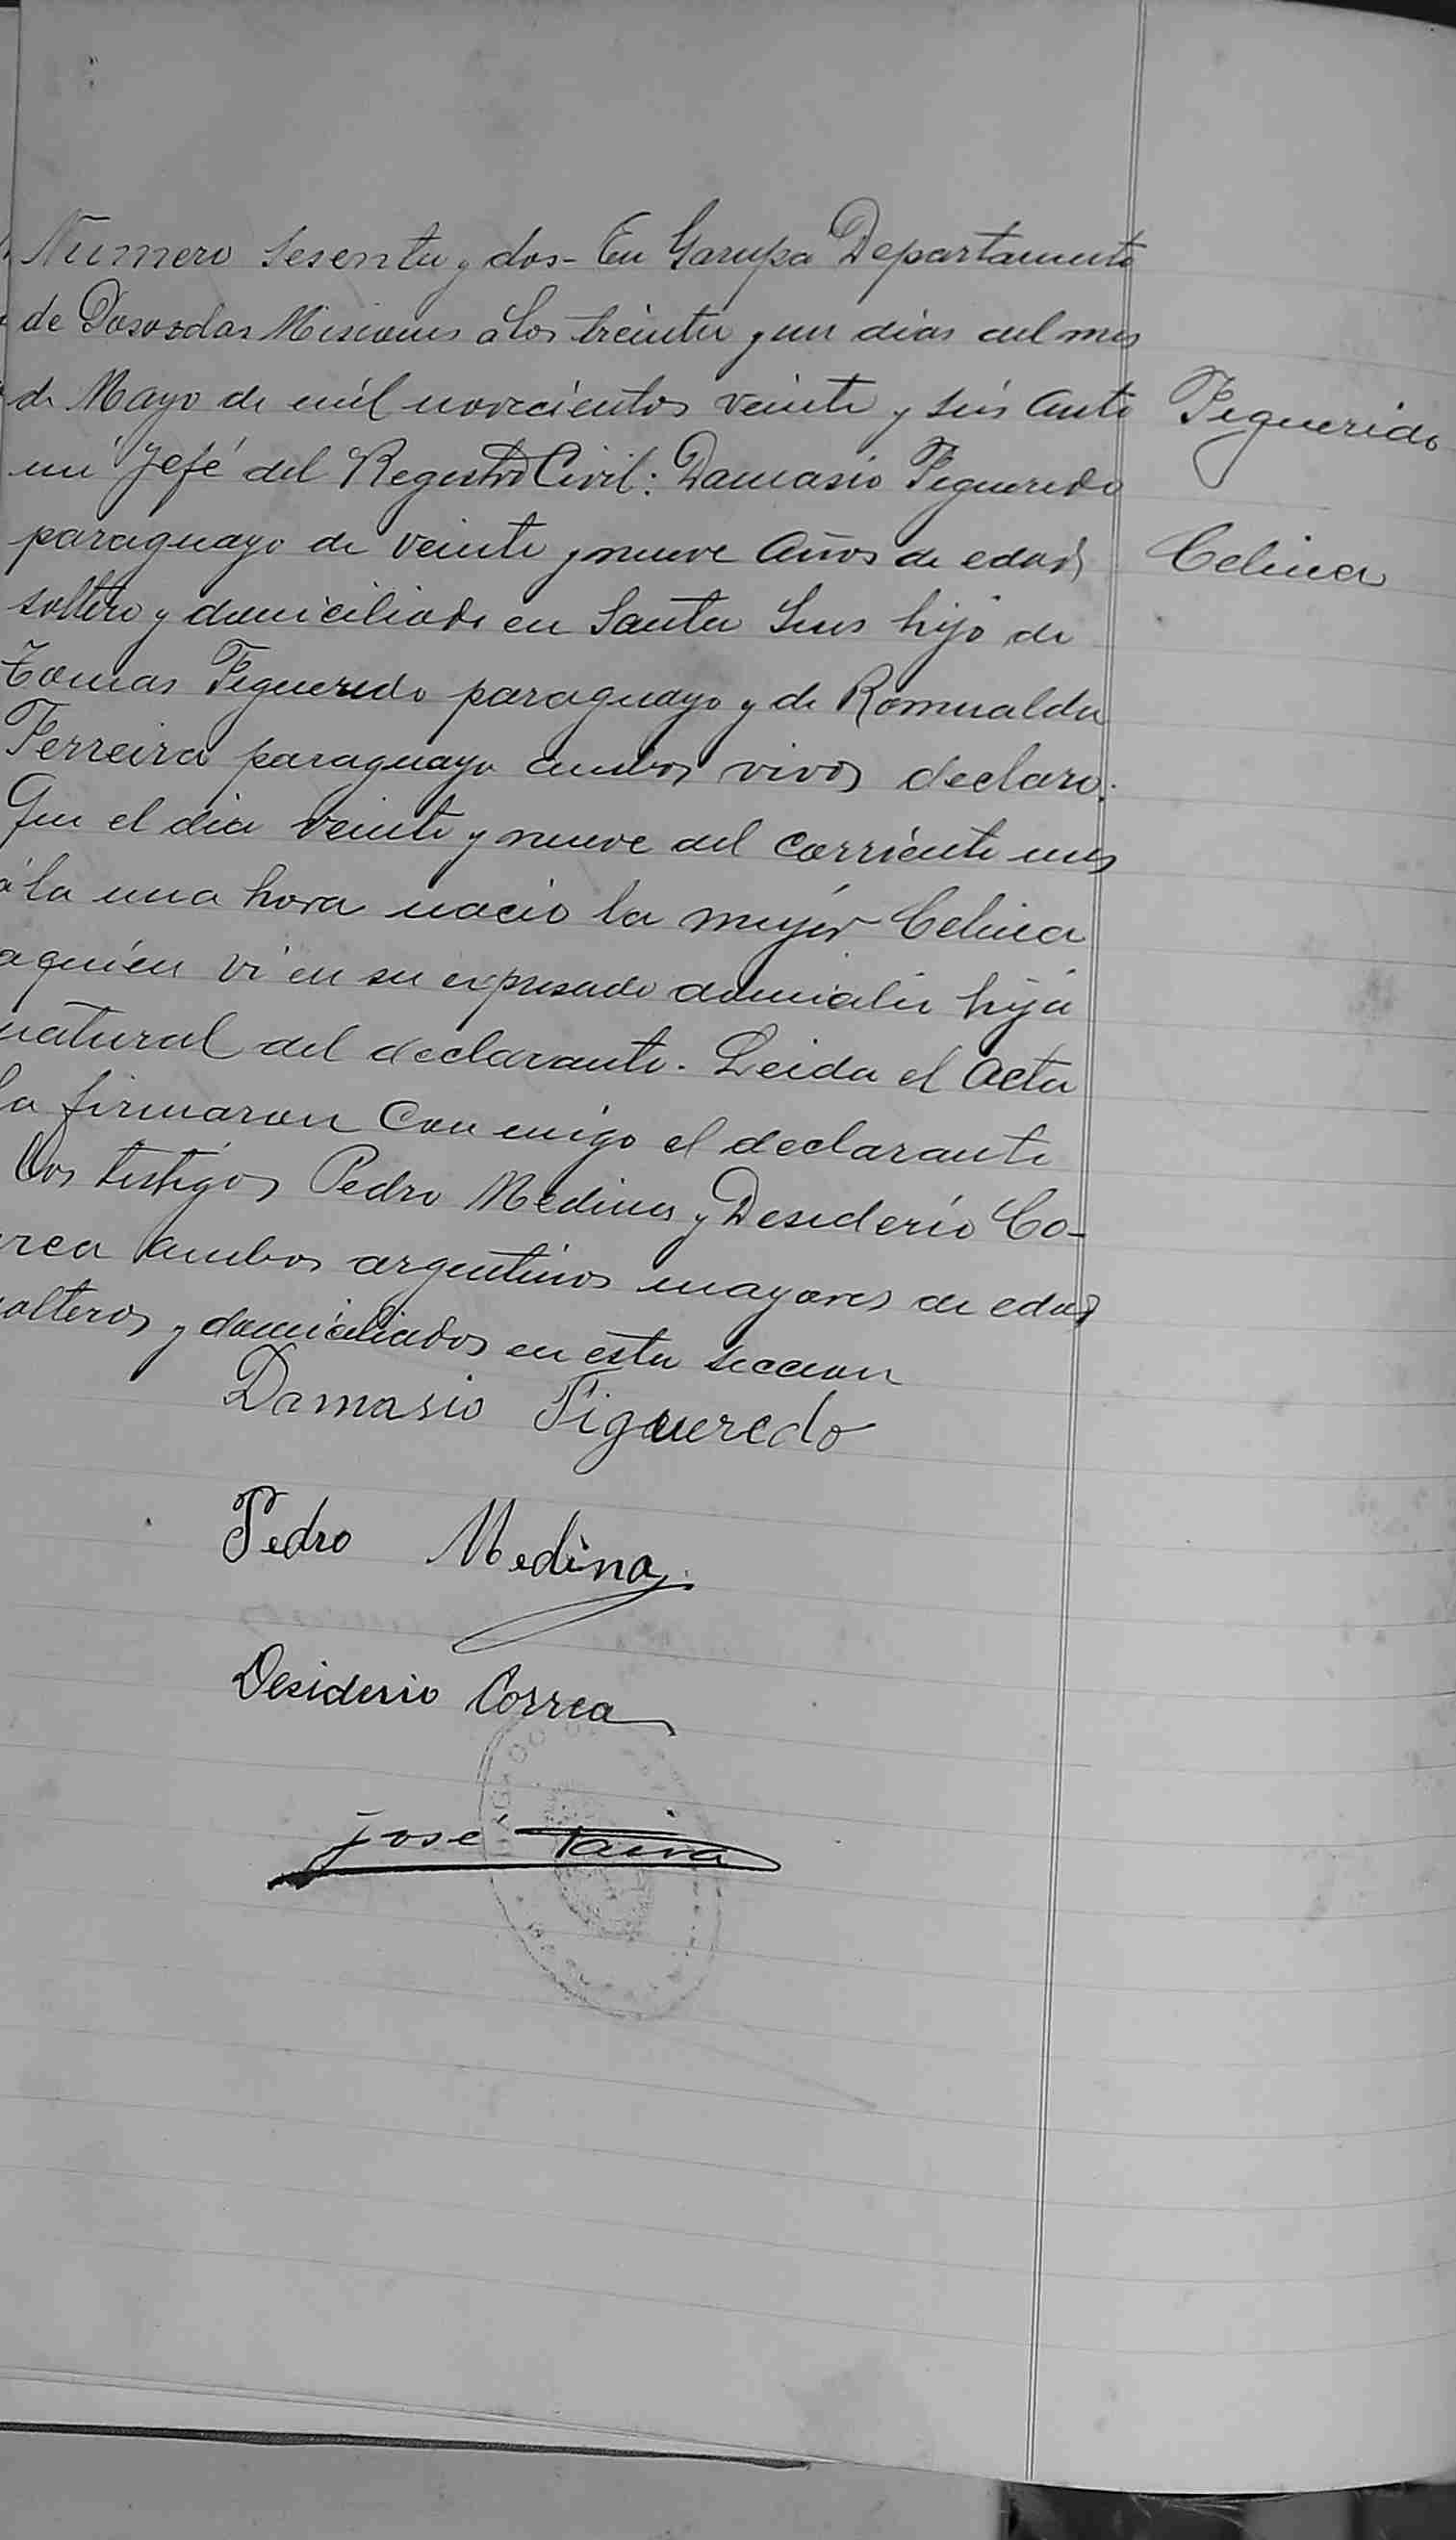 Numero sesenta y dos - En Garupa Departamento
de Posadas Misiones á los treinta y un dias del mes
de Mayo de mil novecientos veinte y seis Ante
mi Jefe del Registro Civil: Damasio Figueredo
paraguayo de veinte y nueve Años de edad
soltero y domiciliado en Santa Ines hijo de
Tomas Figueredo paraguayo y de Romualda
Ferreira paraguaya ambos vivos declaro:
Que el dia veinte y nueve del corriente mes
á la una hora nacio la mujer Celina
a quien vi en su expresado domicilio hija
natural del declarante. Leida el Acta
la firmaron Con migo el declarante
los testigos Pedro Medina y Desiderio Co-
rrea ambos argentinos mayores de edad
solteros y domiciliados en esta seccion
Figueredo
Celina
Damasio Figueredo
Pedro Medina
Desiderio Correa
José Paiva